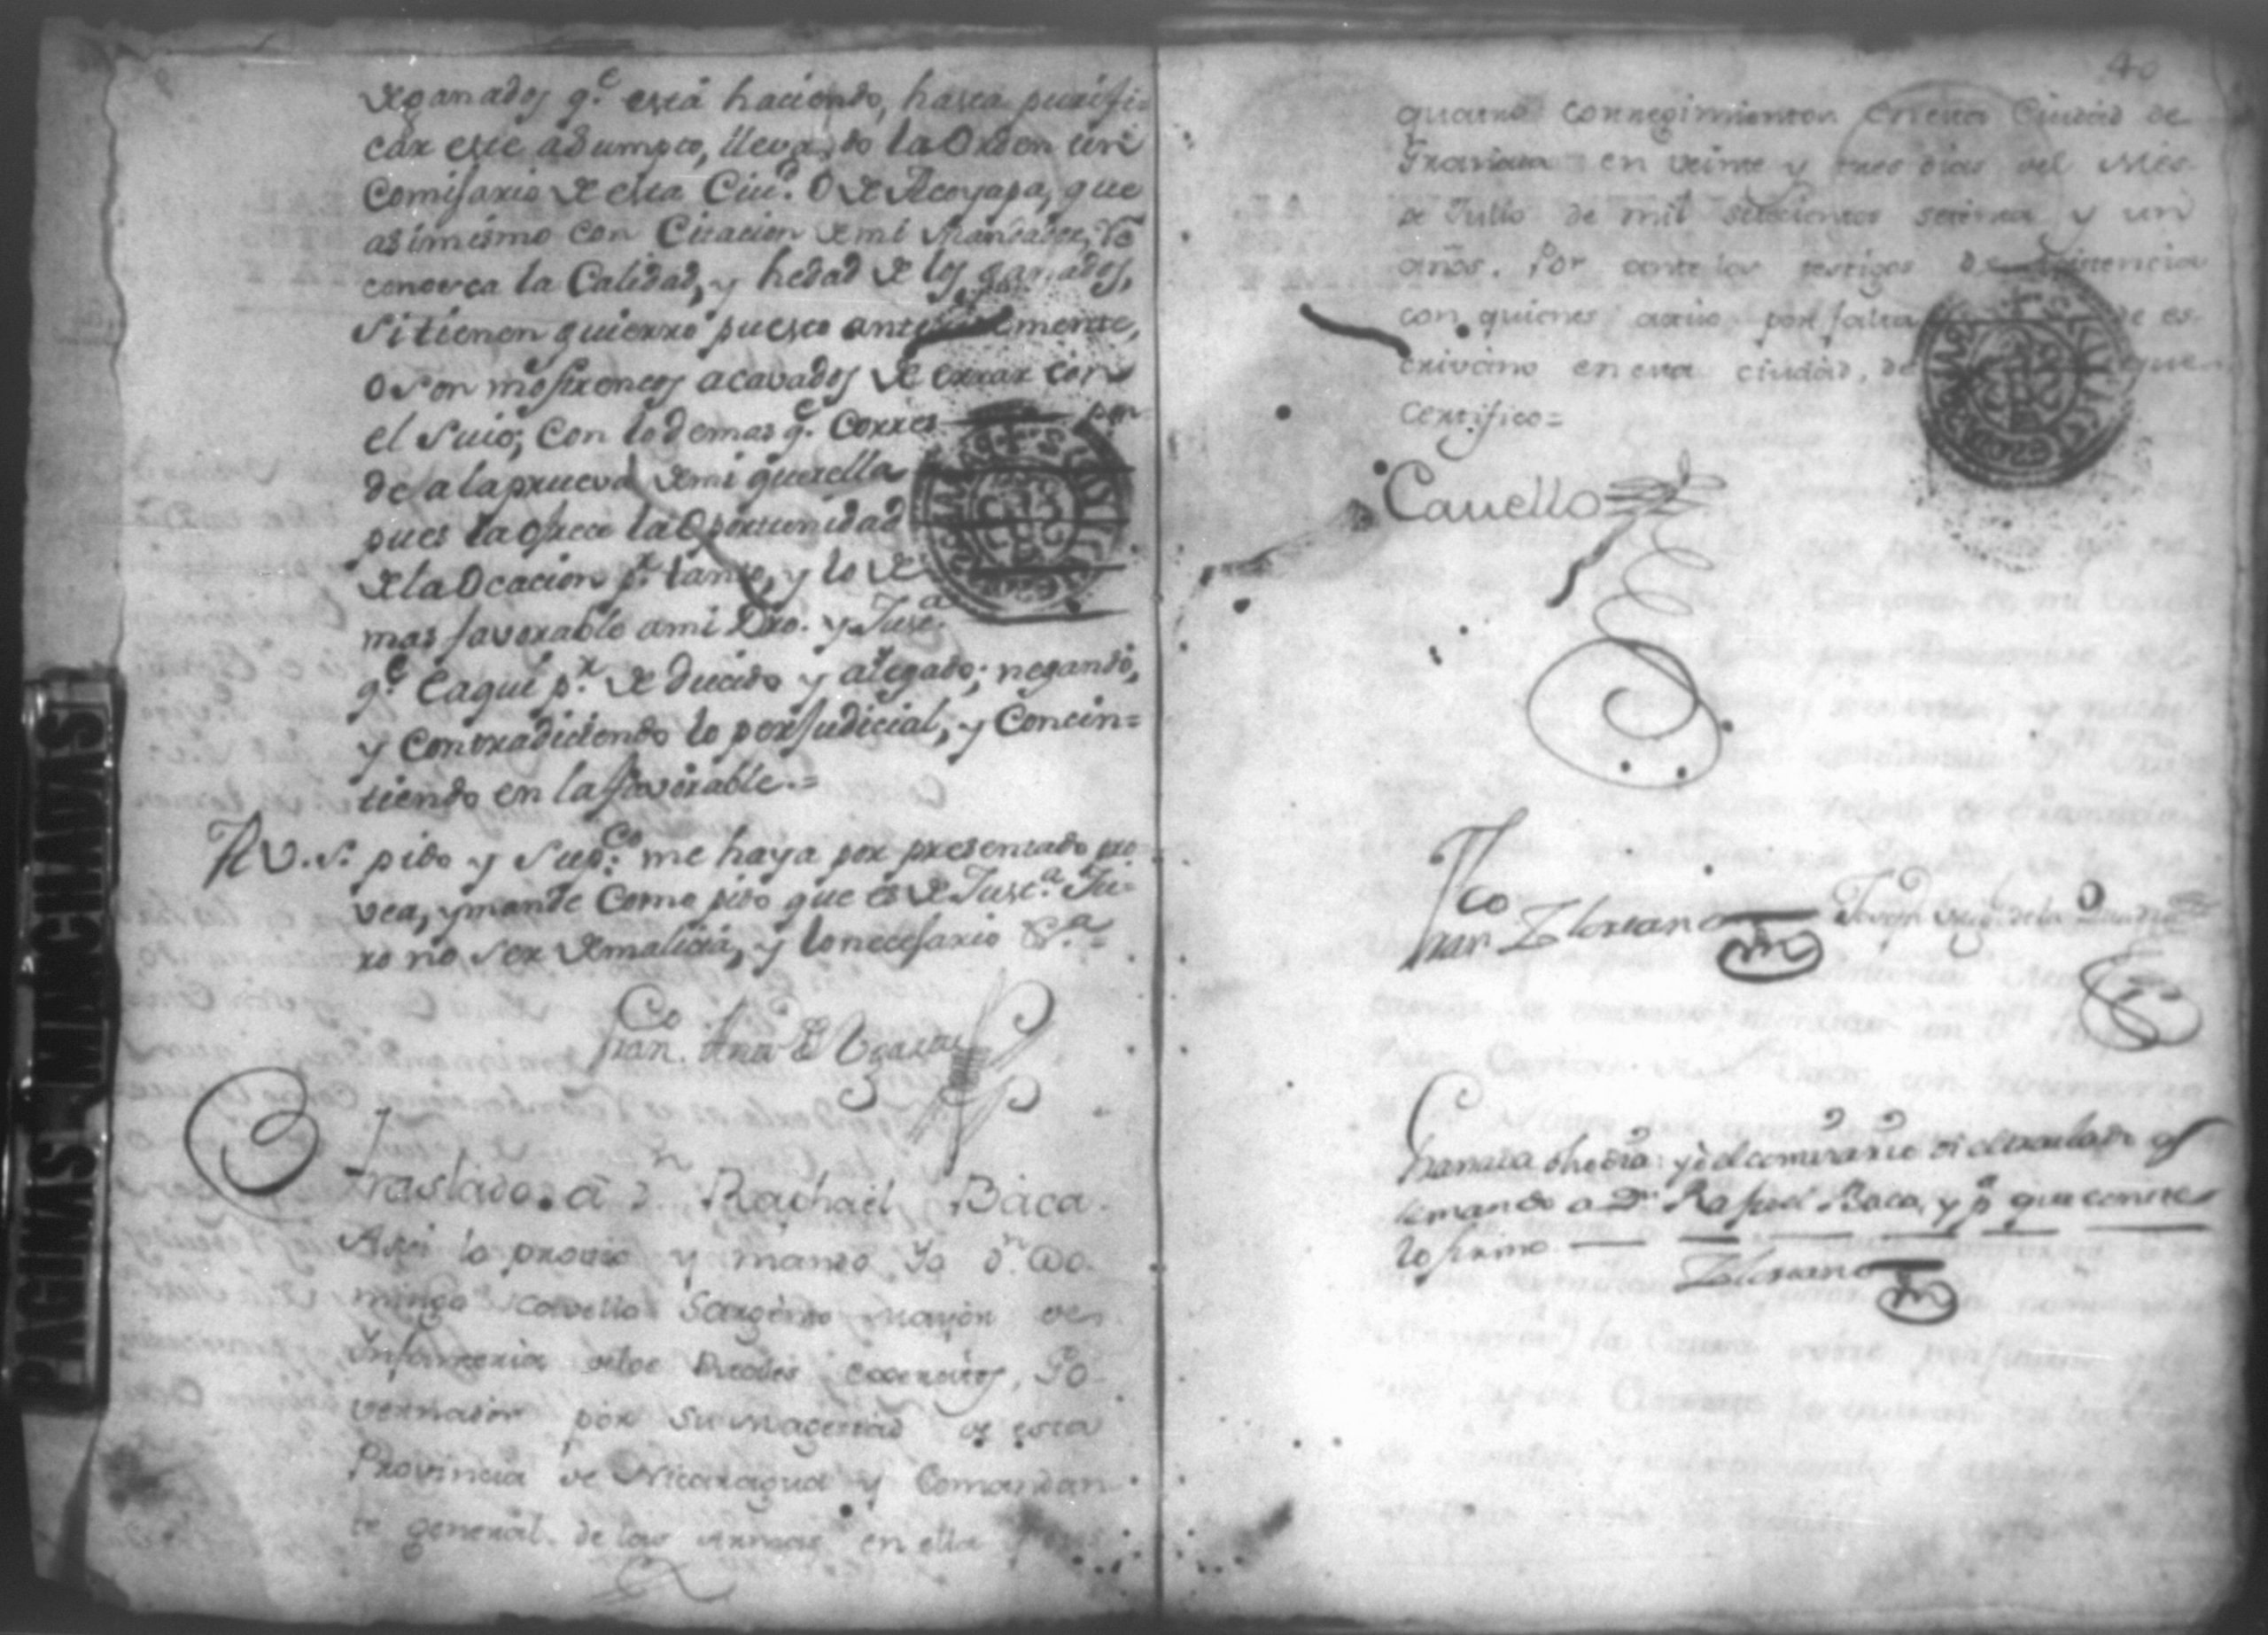 de ganados q.e está haciendo, hasta purifi=
car este asumpto, llevando la Orden un
Comisario de esta Ciu.d O de Acoyapa, que
asimismo con Citacion de mi Mandador, re
conosca la Calidad, y hedad de los ganados,
si tienen quierro puesto anteriormente,
o son mostrencos acavados de errar con
el suio; Con lo demas q.e corres pon
de a la prueva de mi querella
pues la ofrece la Oportunidad
de la Ocacion p.r tanto, y lo de
mas favorable a mi Dro. y Just.a
q.e e aqui p.r deducido y alegado; negando,
y Contradiciendo lo perjudicial, y Concin=
tiendo en lo favorable.=
A V. S. pido y Sup.co me haya por presentado pro
vea, y mande Como pido que es de Just.a Ju=
ro no ser de malicia, y lo necesario &.a=
Fran.co Ant.o de Ugarte
Traslado. a d.n Raphael Baca.
Assi lo proveo y mando Yo d.n Do
mingo Cavello Sargento Mayor de
Infanteria de los Reales exercitos, Go
vernador por su Magestad de esta
Provincia de Nicaragua y Comandan
te general. de las Armas en ella
40
quatro corregimientos en esta Ciudad de
Granada en veinte y tres dias del Mes
de Julio de mil setecientos setenta y un
años. Por ante los testigos de asistencia
con quienes actuo por falta de es
crivano en esta ciudad, de que
Certifico=
Cavello
Fran.co Zloriano Joseph de la Quadra
Granada dho dia yo el comisario di el traslado q.e
se manda a D.n Rafael Baca, y p.a que conste
lo firmo
Zloriano
PAGINAS MANCHADAS